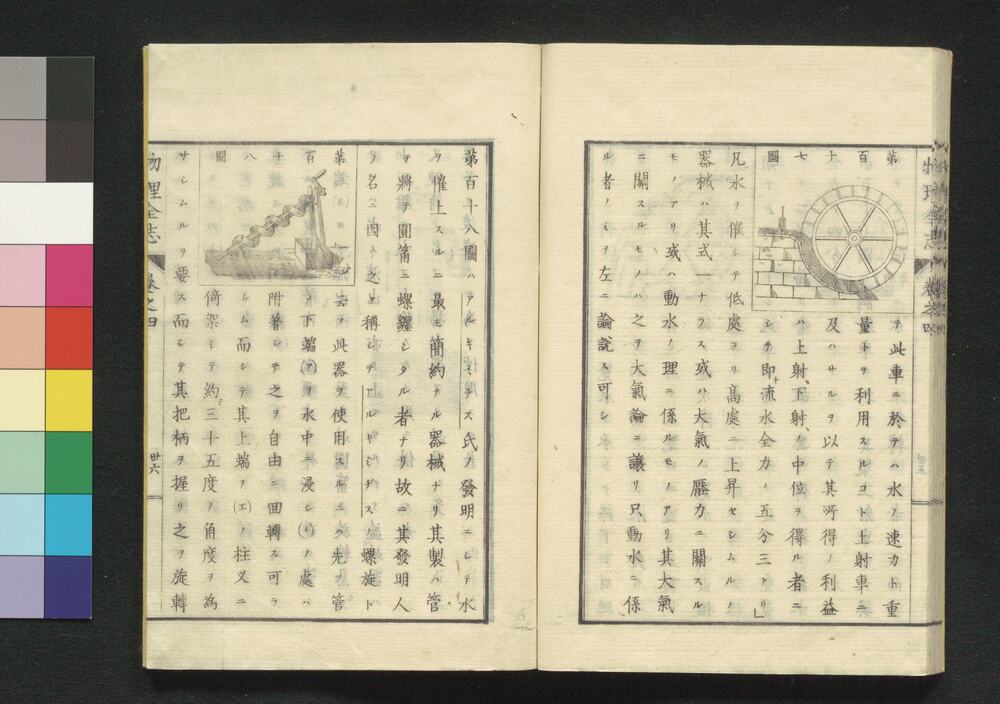 第百十七圖
テ此車ニ於テハ水ノ速力ト重
量トヲ利用スルコト上射車ニ
及ハサルヲ以テ其所得ノ利益
ハ上射、下射、ノ中位ヲ得ル者ニ
シテ即流水全力ノ五分三トリ」
凡水ヲ催シテ低處ヨリ高處ニ上昇セシムルノ
器械ハ其式一ナラス或ハ大氣ノ壓力ニ關スル
モノアリ或ハ動水ノ理ニ係ルモノアリ其大氣
ニ關スルモノハ之ヲ大氣論ニ讓リ只動水ニ係
ル者ノミヲ左ニ論説ス可シ
第百十八圖ハアルキミデス氏ノ發明ニシテ水
ヲ催上スルニ最モ簡約ナル器械ナリ其製ハ管
ヲ將テ圓筩ニ螺纏シタル者ナリ故ニ其發明人
ノ名ニ因ト之ヲ稱シテアルキミデス螺旋ト
第百十八圖
云フ此器ヲ使用スルニハ先ツ管
ノ下端(ア)ヲ水中ニ浸シ(イ)ノ處ハ
附著シテ之ヲ自由ニ回轉ス可ラ
シム而シテ其上端ヲ(エ)ノ柱叉ニ
倚架シテ約三十五度ノ角度ヲ為
サシムルヲ要ス而シテ其把柄ヲ握リ之ヲ旋轉
物理全志 卷之四 卅六